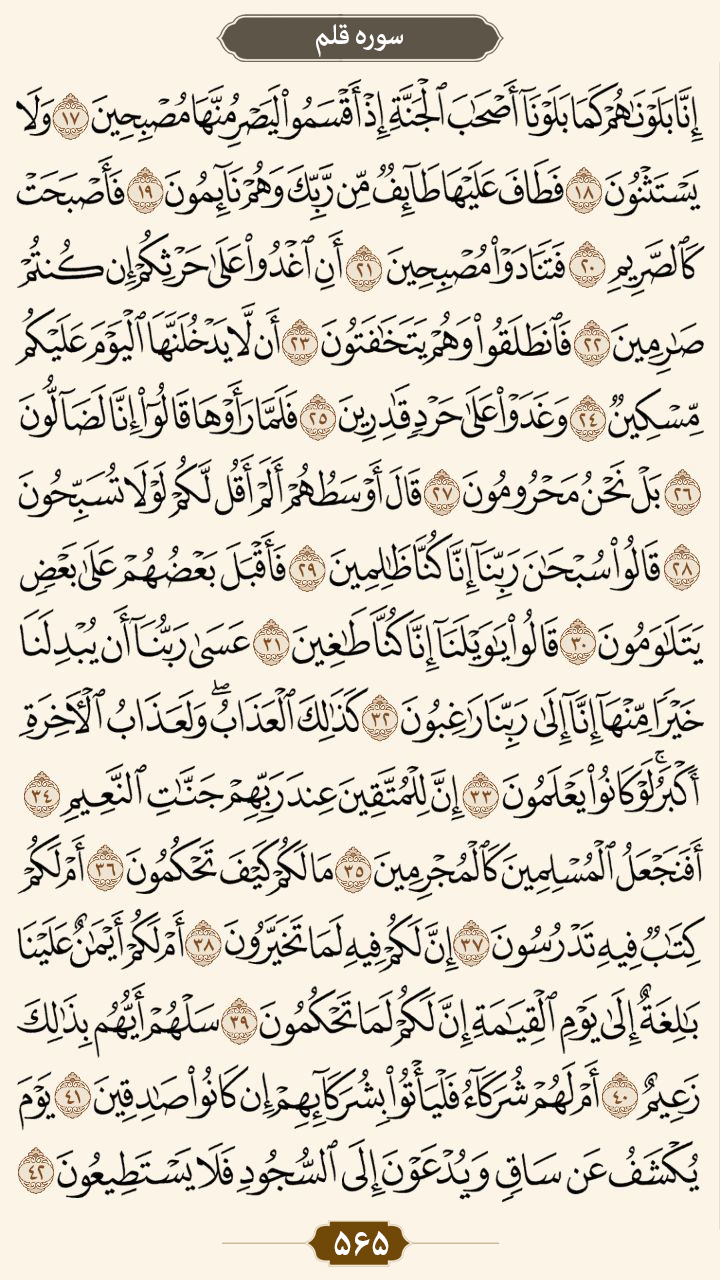 سوره قلم
إِنَّا بَلَوْنَٰهُمْ كَمَا بَلَوْنَآ أَصْحَٰبَ ٱلْجَنَّةِ إِذْ أَقْسَمُوا۟ لَيَصْرِمُنَّهَا مُصْبِحِينَ ١٧ وَلَا
يَسْتَثْنُونَ ١٨ فَطَافَ عَلَيْهَا طَآئِفٌ مِّن رَّبِّكَ وَهُمْ نَآئِمُونَ ١٩ فَأَصْبَحَتْ
كَٱلصَّرِيمِ ٢٠ فَتَنَادَوْا۟ مُصْبِحِينَ ٢١ أَنِ ٱغْدُوا۟ عَلَىٰ حَرْثِكُمْ إِن كُنتُمْ
صَٰرِمِينَ ٢٢ فَٱنطَلَقُوا۟ وَهُمْ يَتَخَٰفَتُونَ ٢٣ أَن لَّا يَدْخُلَنَّهَا ٱلْيَوْمَ عَلَيْكُم
مِّسْكِينٌ ٢٤ وَغَدَوْا۟ عَلَىٰ حَرْدٍ قَٰدِرِينَ ٢٥ فَلَمَّا رَأَوْهَا قَالُوٓا۟ إِنَّا لَضَآلُّونَ
٢٦ بَلْ نَحْنُ مَحْرُومُونَ ٢٧ قَالَ أَوْسَطُهُمْ أَلَمْ أَقُل لَّكُمْ لَوْلَا تُسَبِّحُونَ
٢٨ قَالُوا۟ سُبْحَٰنَ رَبِّنَآ إِنَّا كُنَّا ظَٰلِمِينَ ٢٩ فَأَقْبَلَ بَعْضُهُمْ عَلَىٰ بَعْضٍ
يَتَلَٰوَمُونَ ٣٠ قَالُوا۟ يَٰوَيْلَنَآ إِنَّا كُنَّا طَٰغِينَ ٣١ عَسَىٰ رَبُّنَآ أَن يُبْدِلَنَا
خَيْرًا مِّنْهَآ إِنَّآ إِلَىٰ رَبِّنَا رَٰغِبُونَ ٣٢ كَذَٰلِكَ ٱلْعَذَابُ ۖ وَلَعَذَابُ ٱلْءَاخِرَةِ
أَكْبَرُ ۚ لَوْ كَانُوا۟ يَعْلَمُونَ ٣٣ إِنَّ لِلْمُتَّقِينَ عِندَ رَبِّهِمْ جَنَّٰتِ ٱلنَّعِيمِ ٣٤
أَفَنَجْعَلُ ٱلْمُسْلِمِينَ كَٱلْمُجْرِمِينَ ٣٥ مَا لَكُمْ كَيْفَ تَحْكُمُونَ ٣٦ أَمْ لَكُمْ
كِتَٰبٌ فِيهِ تَدْرُسُونَ ٣٧ إِنَّ لَكُمْ فِيهِ لَمَا تَخَيَّرُونَ ٣٨ أَمْ لَكُمْ أَيْمَٰنٌ عَلَيْنَا
بَٰلِغَةٌ إِلَىٰ يَوْمِ ٱلْقِيَٰمَةِ إِنَّ لَكُمْ لَمَا تَحْكُمُونَ ٣٩ سَلْهُمْ أَيُّهُم بِذَٰلِكَ
زَعِيمٌ ٤٠ أَمْ لَهُمْ شُرَكَآءُ فَلْيَأْتُوا۟ بِشُرَكَآئِهِمْ إِن كَانُوا۟ صَٰدِقِينَ ٤١ يَوْمَ
يُكْشَفُ عَن سَاقٍ وَيُدْعَوْنَ إِلَى ٱلسُّجُودِ فَلَا يَسْتَطِيعُونَ ٤٢
۵۶۵